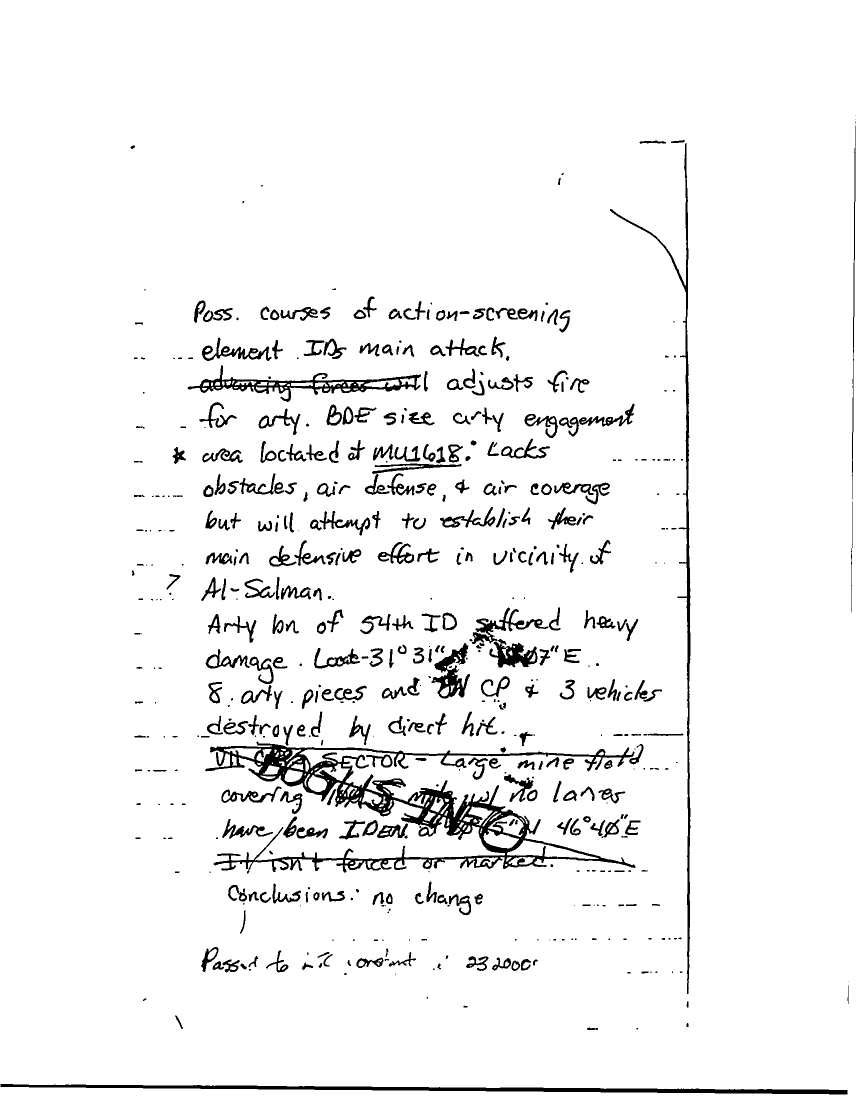 Poss. courses of action-screening
element IDs main attack.
advancing forces will adjusts fire
for arty. BDE size arty engagement
* area loctated at MU1618. Lacks
obstacles, air defense, & air coverage
but will attempt to establish their
main defensive effort in vicinity of
? Al-Salman.
Arty bn of 54th ID suffered heavy
damage. Loct-31°31"N 07"E.
8 arty pieces and CP & 3 vehicles
destroyed by direct hit.
VII SECTOR - Large mine field
BOGUS INFO
covering no lanes
have been IDEN at N 46°40"E
It isn't fenced or marked.
Conclusions: no change
Passed to 232000